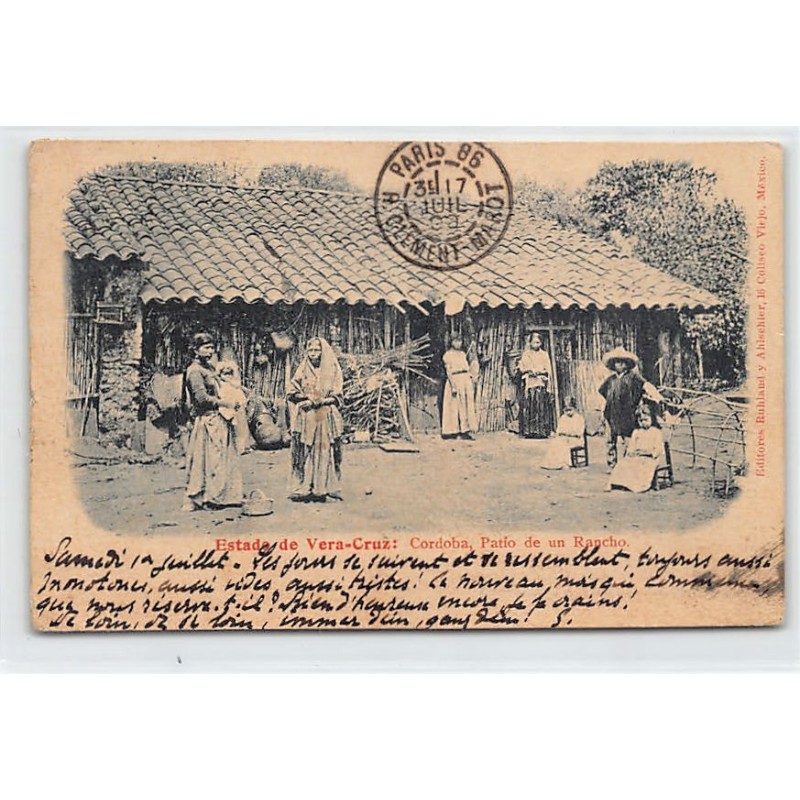 PARIS 86
3E 17
JUIL
99
R. CLEMENT-MAROT
Editores Ruhland y Ahlschier, 16 Coliseo Viejo, México.
Estado de Vera-Cruz: Cordoba, Patio de un Rancho.
Samedi 1er juillet - Les jours se suivent et se ressemblent, toujours aussi
monotones, aussi vides, aussi tristes! Ce nouveau, mois qui commence,
que nous réserve-t-il? Rien d'heureux encore, je le crains!
De loin, de loin, immer dein, ganz dein! G.